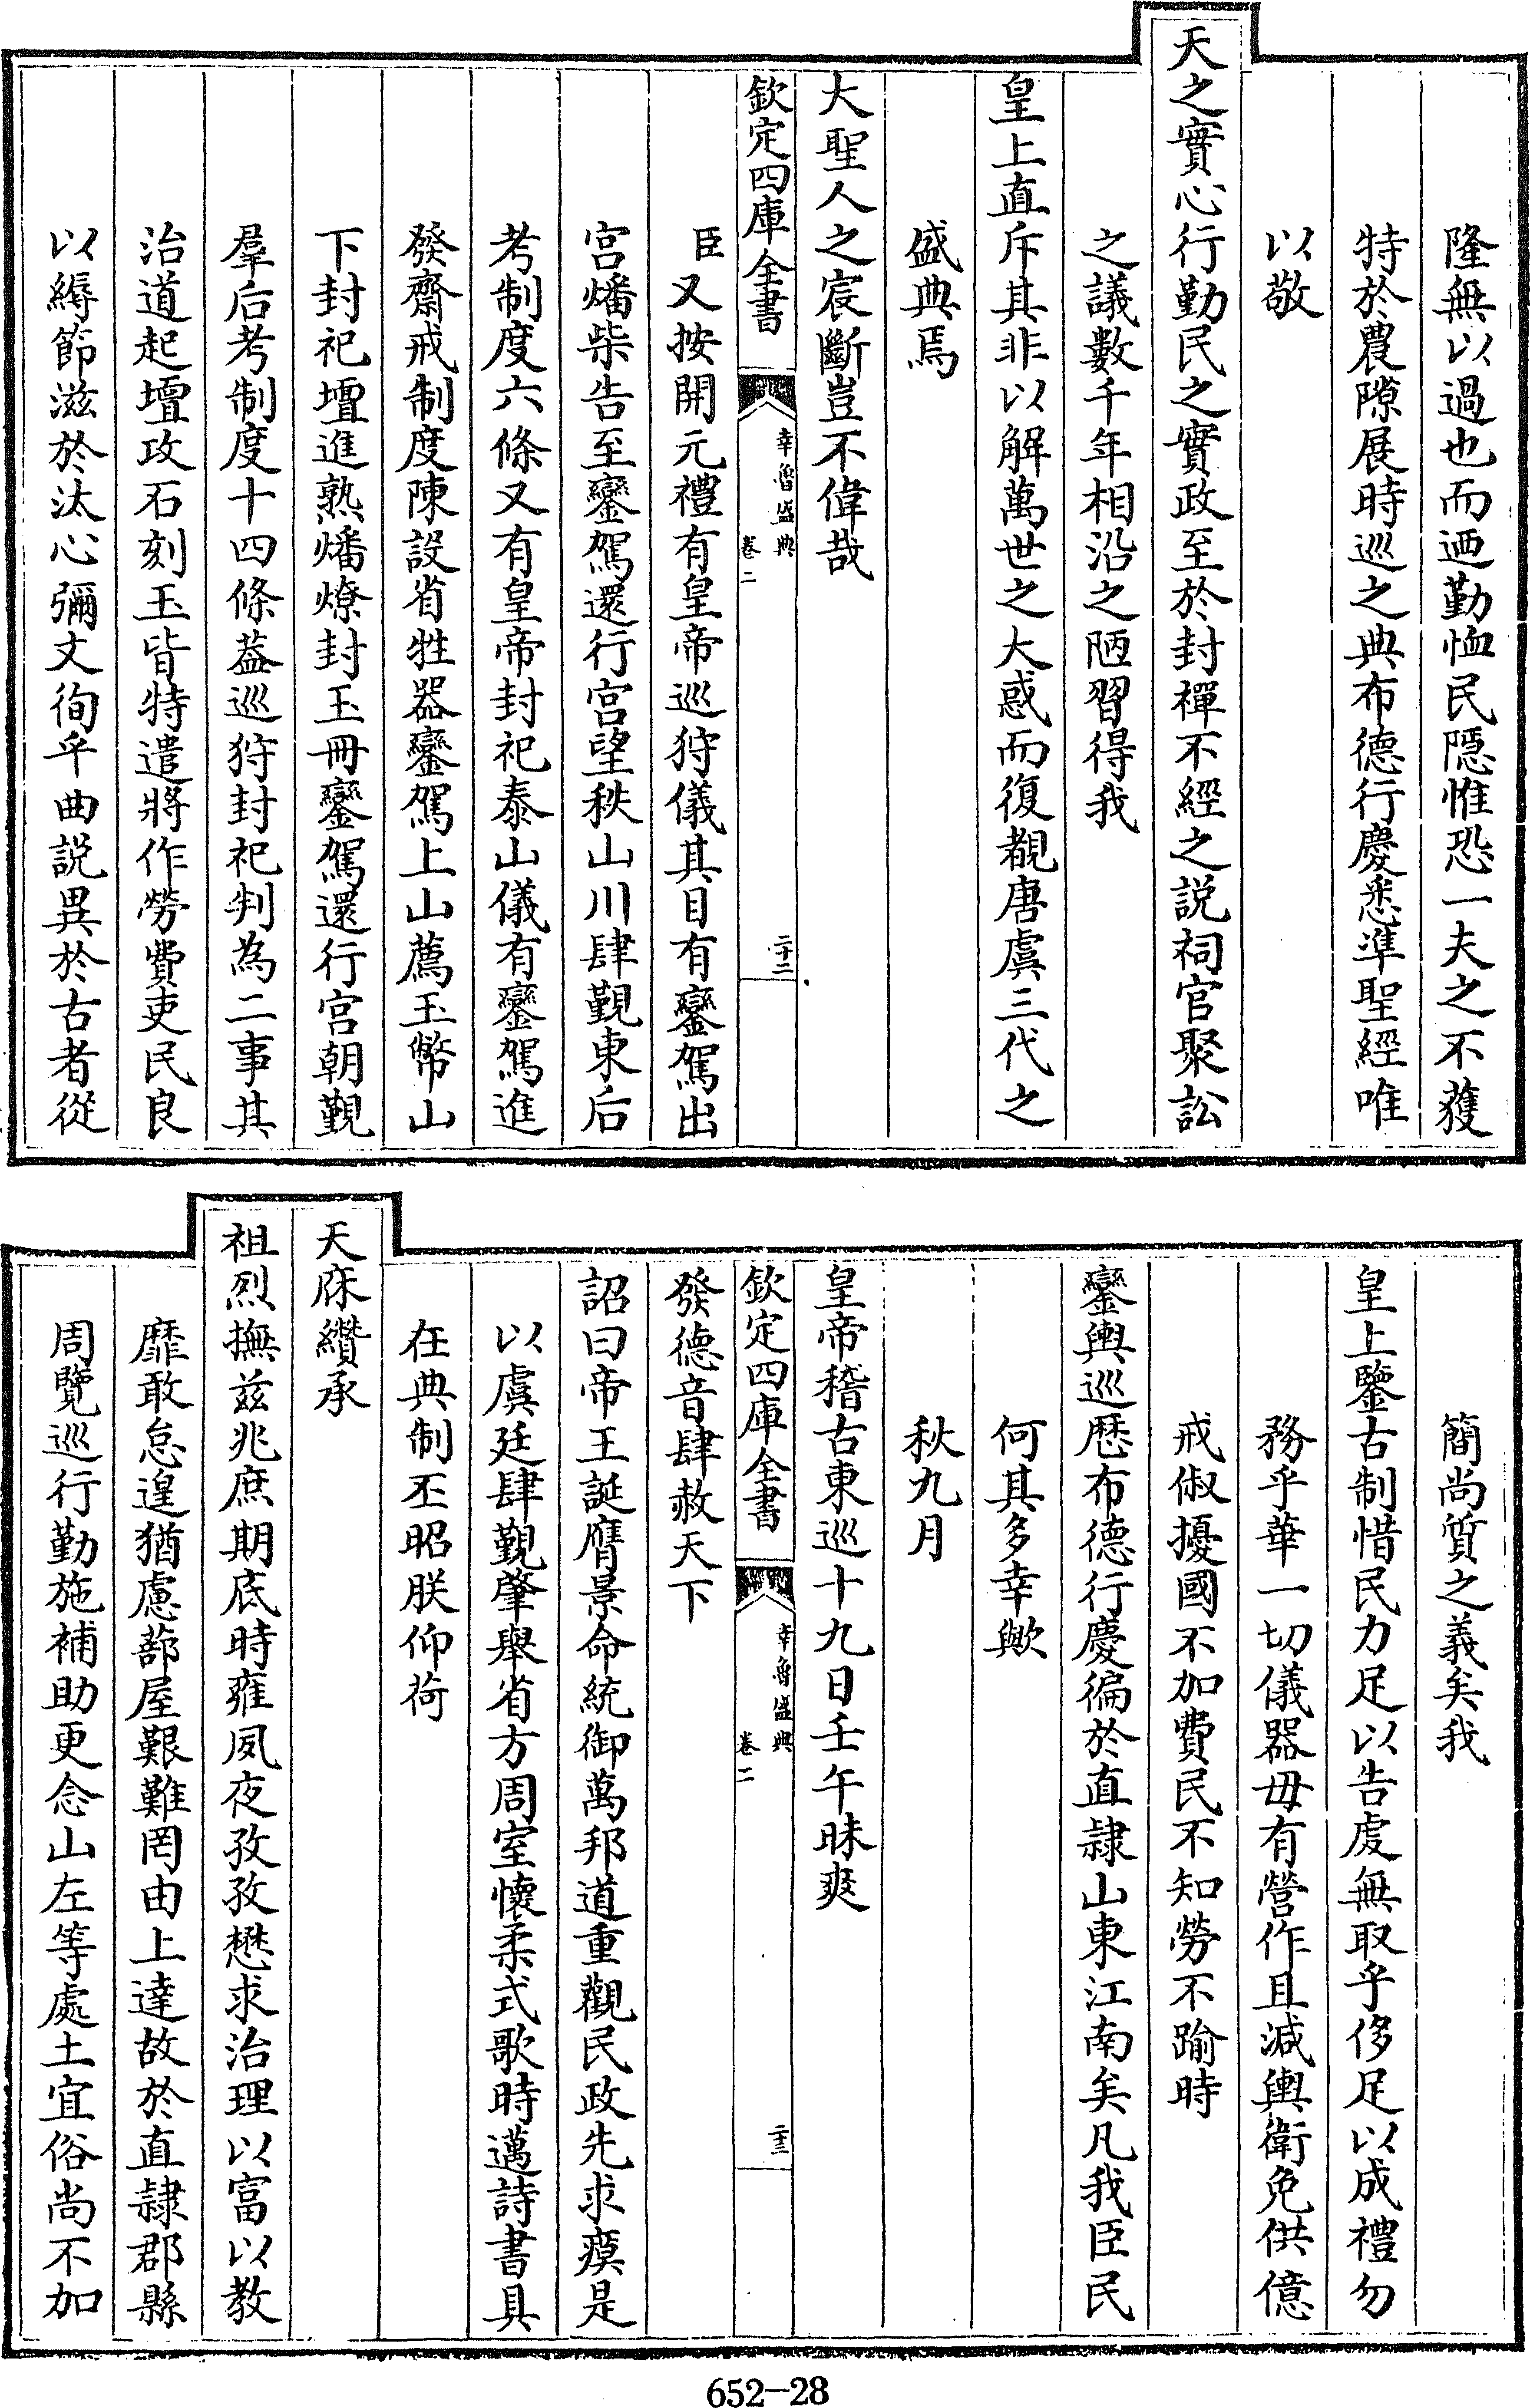 隆無以過也而迺勤恤民隱惟恐一夫之不獲
特於農隙展時巡之典布德行慶悉準聖經唯
以敬
天之實心行勤民之實政至於封禪不經之説祠官聚訟
之議數千年相沿之陋習得我
皇上直斥其非以解萬世之大惑而復覩唐虞三代之
盛典焉
大聖人之宸斷豈不偉哉
欽定四庫全書 幸魯盛典 卷二 二十二
臣又按開元禮有皇帝巡狩儀其目有鑾駕出
宮燔柴告至鑾駕還行宮望秩山川肆覲東后
考制度六條又有皇帝封祀泰山儀有鑾駕進
發齋戒制度陳設省牲器鑾駕上山薦玉幣山
下封祀壇進熟燔燎封玉冊鑾駕還行宮朝覲
羣后考制度十四條葢巡狩封祀判為二事其
治道起壇攻石刻玉皆特遣將作勞費吏民良
以縟節滋於汰心彌文徇乎曲説異於古者從
簡尚質之義矣我
皇上鑒古制惜民力足以告虔無取乎侈足以成禮勿
務乎華一切儀器毋有營作且減輿衛免供億
戒俶擾國不加費民不知勞不踰時
鑾輿巡歷布德行慶徧於直隸山東江南矣凡我臣民
何其多幸歟
秋九月
皇帝稽古東巡十九日壬午昧爽
欽定四庫全書 幸魯盛典 卷二 二十三
發德音肆赦天下
詔曰帝王誕膺景命統御萬邦道重觀民政先求瘼是
以虞廷肆覲肇舉省方周室懷柔式歌時邁詩書具
在典制丕昭朕仰荷
天庥纘承
祖烈撫兹兆庶期底時雍夙夜孜孜懋求治理以富以教
靡敢怠遑猶慮蔀屋艱難罔由上達故於直隸郡縣
周覽巡行勤施補助更念山左等處土宜俗尚不加
652-28